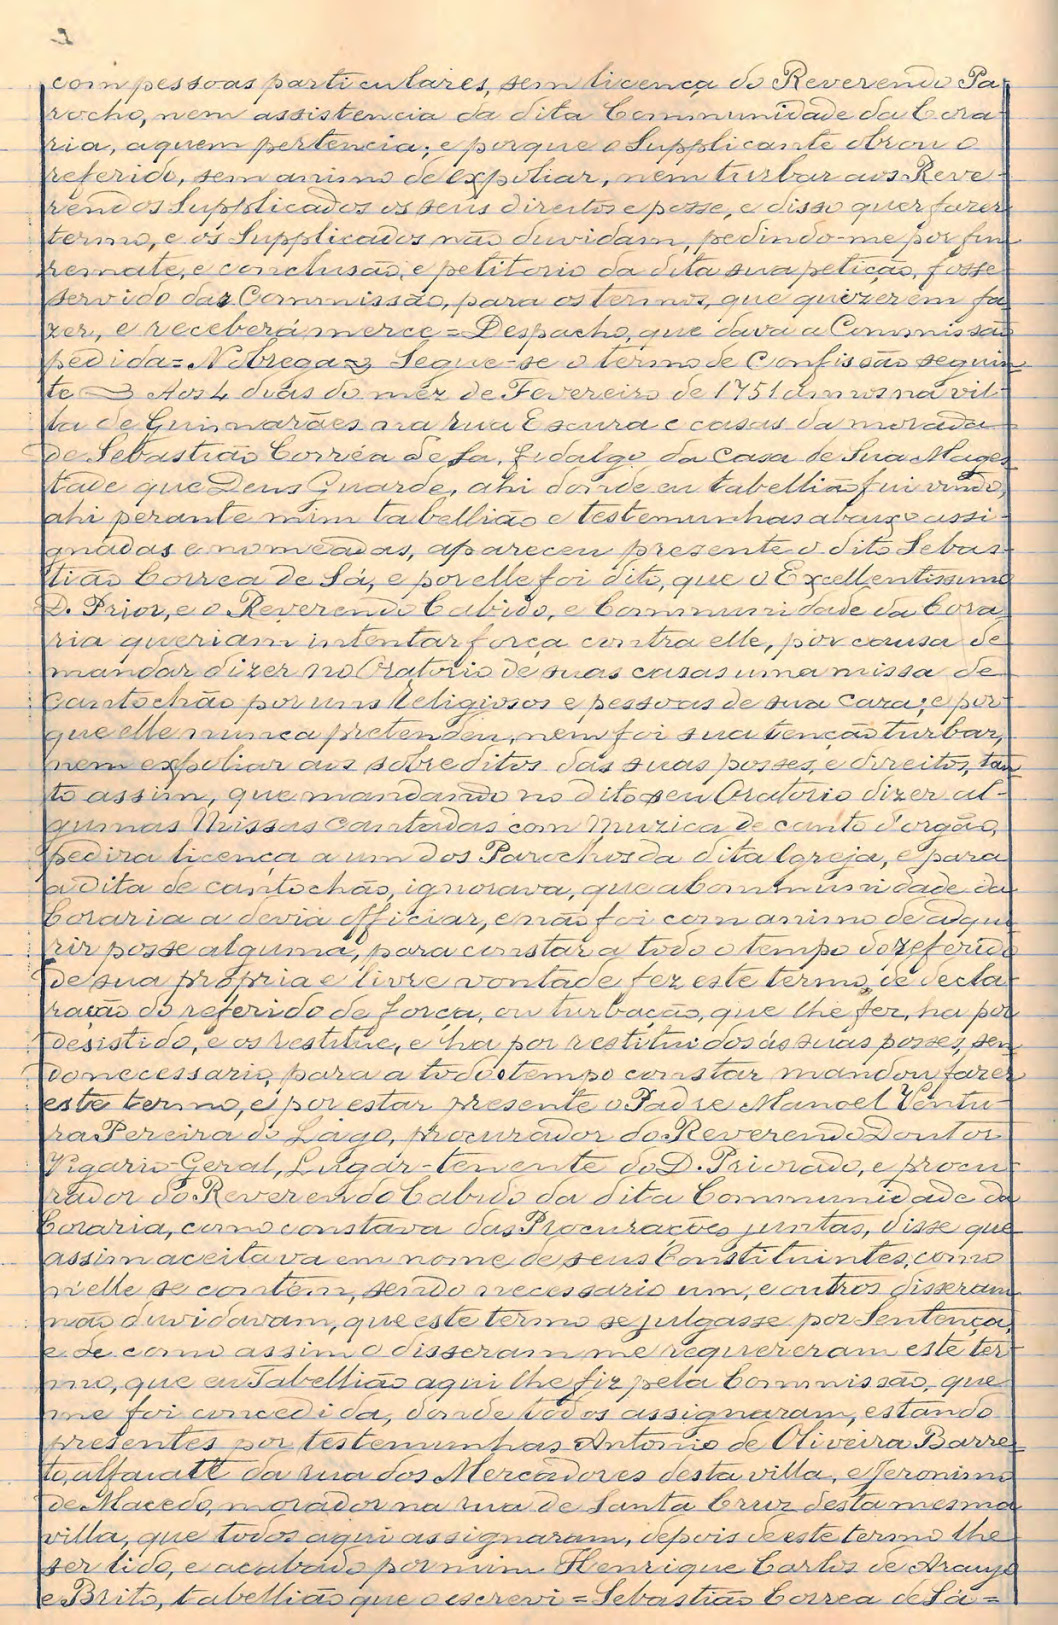 2
com pessoas particulares, sem licença do Reverendo Pa
rocho, nem assistencia da dita Communidade da Cora-
ria, a quem pertencia; e porque o Supplicante obrou o
referido, sem animo de expoliar, nem turbar aos Reve-
rendos Supplicados os seus direitos e posse, e disso quer fazer
termo, e os Supplicados não duvidam, pedindo-me por fim
remate, e conclusão, e petitorio da dita sua petição, fosse
servido dar Commissão, para os termos, que quizerem fa
zer, e receberá merce = Despacho, que dava a Commissão
pedida = Nobrega = Segue-se o termo de Confissão seguin
te = Aos 4 dias do mez de Fevereiro de 1751 annos na vil-
la de Guimarães na rua Escura e casas da morada
de Sebastião Corrêa de Sa, fidalgo da Casa de Sua Mages
tade que Deus Guarde, ahi donde eu tabellião fui vindo,
ahi perante mim tabellião e testemunhas abaixo assi-
gnadas e nomeadas, apareceu presente o dito Sebas-
tião Correa de Sá, e por elle foi dito, que o Excellentissimo
D. Prior, e o Reverendo Cabido, e Communidade da Cora-
ria queriam intentar força contra elle, por causa de
mandar dizer no Oratorio de suas casas uma missa de
cantochão por uns Religiosos e pessoas de sua caza; e por-
que elle nunca pretendeu, nem foi sua tenção turbar,
nem expoliar aos sobreditos das suas posses, e direitos, tan
to assim, que mandando no dito seu Oratorio dizer al-
gumas Missas cantadas com muzica de canto d'orgão,
pedira licença a um dos Parochos da dita Igreja, e para
a dita de cantochão, ignorava, que a Communidade da
Coraria a devia officiar, e não foi com animo de adqui
rir posse alguma, para constar a todo o tempo do referido
de sua propria e livre vontade fez este termo, de decla-
ração do referido de força, ou turbação, que lhe fez, ha por
desistido, e os restitue, e ha por restituidos ás suas posses, sen
do necessario, para a todo o tempo constar mandou fazer
este termo, e por estar presente o Padre Manoel Ventu-
ra Pereira do Lago, procurador do Reverendo Doutor
Vigario Geral, Lugar-tenente do D. Priorado, e procu-
rador do Reverendo Cabido da dita Communidade da
Coraria, como constava das Procurações juntas, disse que
assim aceitava em nome de seus Constituintes, como
n'elle se contem, sendo necessario um, e outros disseram
não duvidavam, que este termo se julgasse por Sentença,
e de como assim o disseram me requereram este ter-
mo, que eu Tabellião aqui lhe fiz pela Commissão, que
me foi concedida, donde todos assignaram, estando
presentes por testemunhas Antonio de Oliveira Barre-
to, alfaiate da rua dos Mercadores desta villa, e Jeronimo
de Macedo, morador na rua de Santa Cruz desta mesma
villa, que todos aqui assignaram, depois de este termo lhe
ser lido, e acabado por mim Henrique Carlos de Araujo
e Brito, tabellião que o escrevi = Sebastião Correa de Sá =